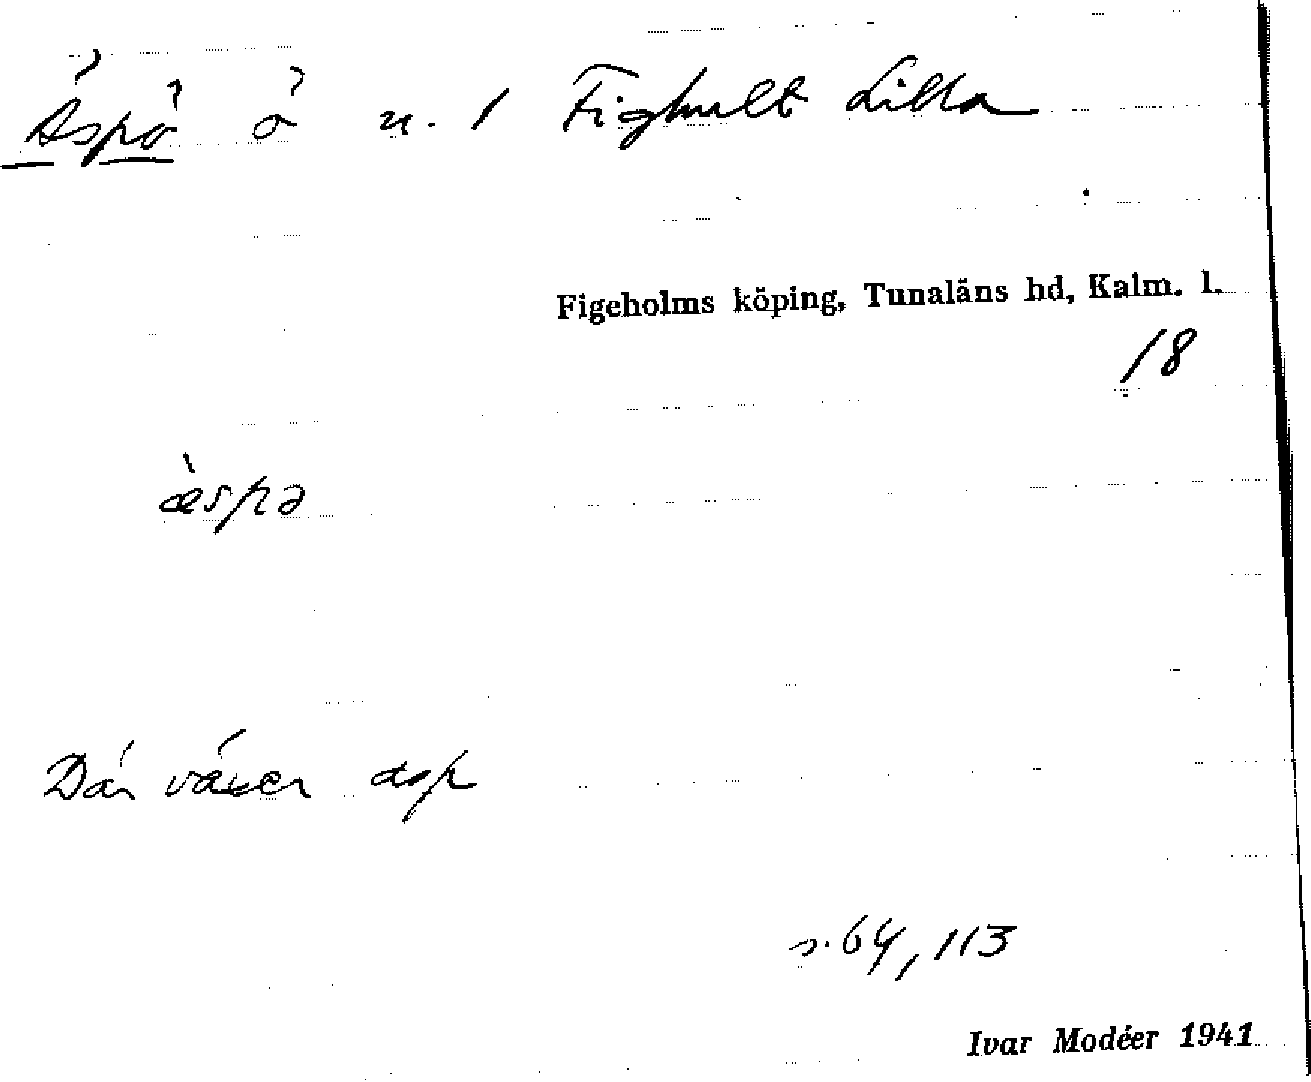 Äspö ö u. 1 Fighult Lilla
Figeholms köping, Tunaläns hd, Kalm. l.
18
æ̀spə
Där växer asp
s. 64, 113
Ivar Modéer 1941